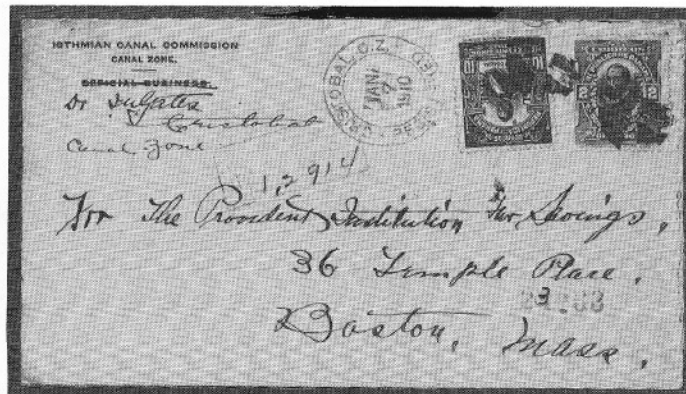 ISTHMIAN CANAL COMMISSION
CANAL ZONE.
OFFICIAL BUSINESS.
Dr
Cristobal
Canal Zone
CRISTOBAL, C.Z.
JAN
7
1910
REGISTERED
10 10
2 2
12914
For The Provident Institution for Savings,
36 Temple Place,
Boston, Mass.